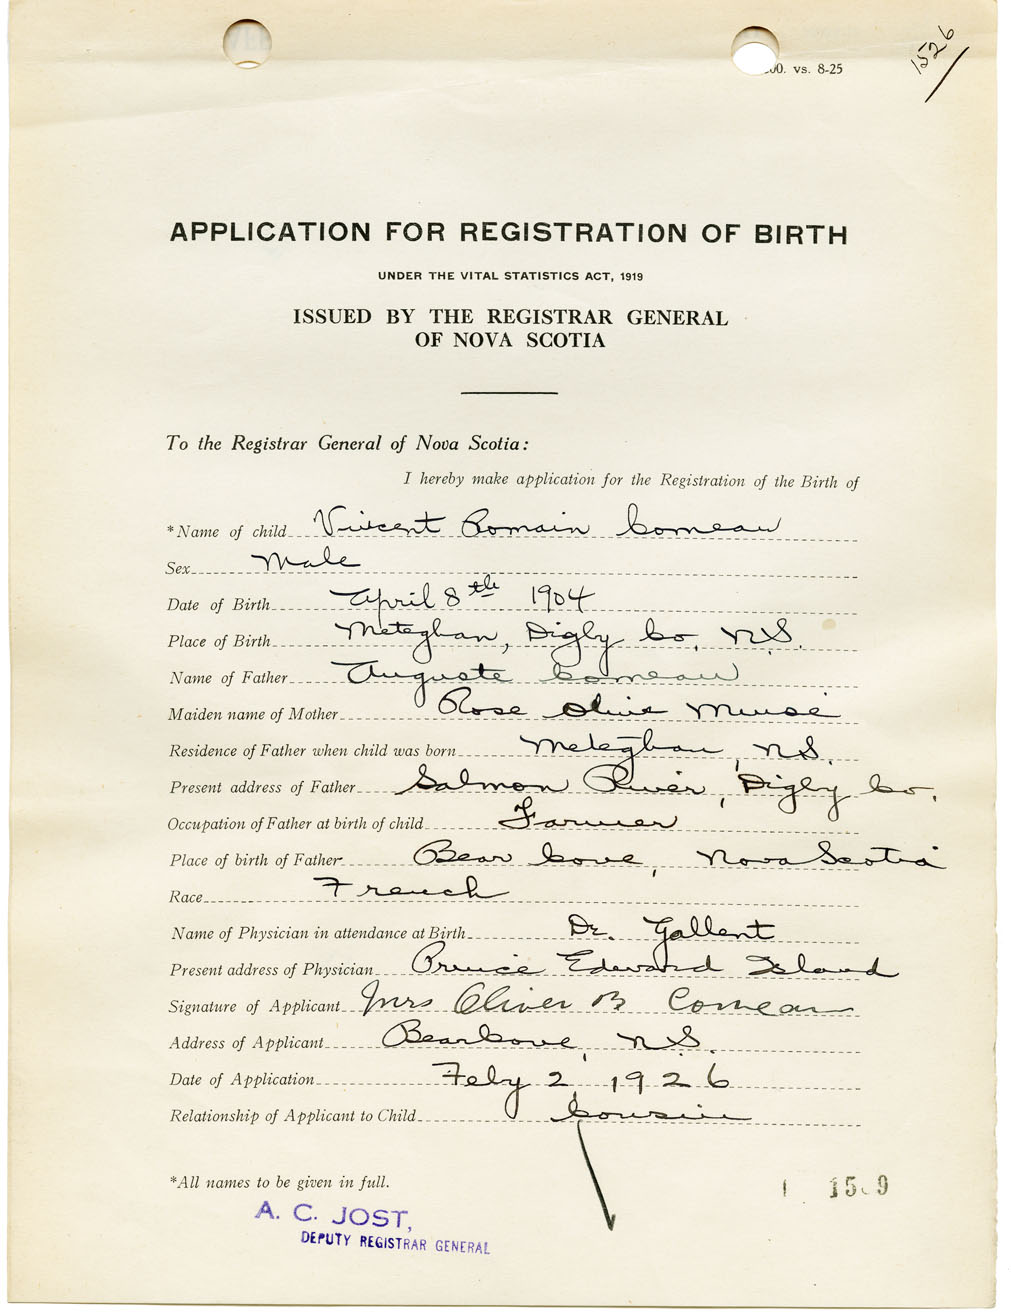 1526
00. vs. 8-25
APPLICATION FOR REGISTRATION OF BIRTH
UNDER THE VITAL STATISTICS ACT, 1919
ISSUED BY THE REGISTRAR GENERAL
OF NOVA SCOTIA
To the Registrar General of Nova Scotia:
I hereby make application for the Registration of the Birth of
*Name of child Vincent Romain Comeau
Sex Male
Date of Birth April 8th 1904
Place of Birth Meteghan, Digby Co. N.S.
Name of Father Auguste Comeau
Maiden name of Mother Rose Olive Muise
Residence of Father when child was born Meteghan, N.S.
Present address of Father Salmon River, Digby Co.
Occupation of Father at birth of child Farmer
Place of birth of Father Bear Cove, Nova Scotia
Race French
Name of Physician in attendance at Birth Dr. Gallent
Present address of Physician Prince Edward Island
Signature of Applicant Mrs Oliver B Comeau
Address of Applicant Bear Cove, N.S.
Date of Application Feby 2, 1926
Relationship of Applicant to Child Cousin
*All names to be given in full.
A. C. JOST,
DEPUTY REGISTRAR GENERAL